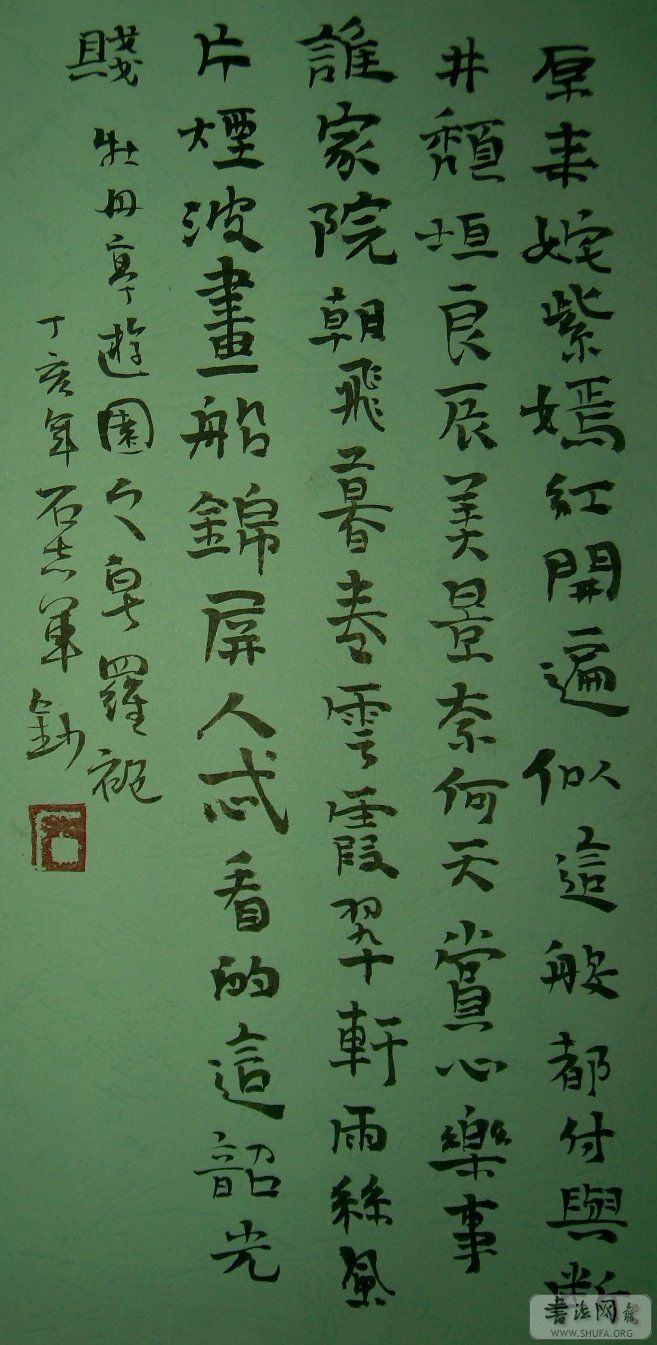 原来姹紫嫣红開遍似這般都付與斷
井頹垣良辰美景奈何天賞心樂事
誰家院朝飛暮卷雲霞翠軒雨絲風
片煙波畫船錦屏人忒看的這韶光
賤
牡丹亭遊園之皂羅袍
丁亥年石志軍鈔
書法网
WWW.SHUFA.ORG